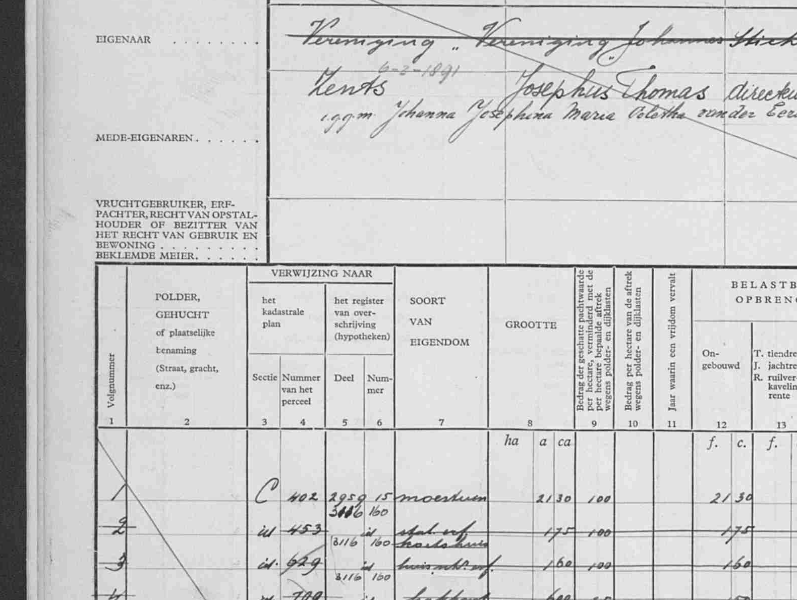 EIGENAAR . . . . . . . Vereniging „ Vereniging Johannes Stick
6-2-1891
Zents Josephus Thomas directeu
i.g.g.m. Johanna Josephina Maria van der Eer
MEDE-EIGENAREN. . . . . .
VRUCHTGEBRUIKER, ERF-
PACHTER, RECHT VAN OPSTAL-
HOUDER OF BEZITTER VAN
HET RECHT VAN GEBRUIK EN
BEWONING . . . . . . . . .
BEKLEMDE MEIER. . . . . .
Volgnummer
POLDER,
GEHUCHT
of plaatselijke
benaming
(Straat, gracht,
enz.)
VERWIJZING NAAR
het
kadastrale
plan
Sectie
Nummer
van het
perceel
het register
van over-
schrijving
(hypotheken)
Deel
Num-
mer
SOORT
VAN
EIGENDOM
GROOTTE
Bedrag der geschatte pachtwaarde
per hectare, verminderd met de
per hectare bepaalde aftrek
wegens polder- en dijklasten
Bedrag per hectare van de aftrek
wegens polder- en dijklasten
Jaar waarin een vrijdom vervalt
BELASTB
OPBRENG
On-
gebouwd
T. tiendre
J. jachtre
R. ruilver
kavelin
rente
1 2 3 4 5 6 7 8 9 10 11 12 13
ha a ca f. c. f.
1 C 402 2959 15 moestuin 21 30 100 21 30
3116 160
2 id 453 id stal erf 1 75 100 1 75
3116 160 koetshuis
3 id. 629 id huis erf 1 60 100 1 60
3116 160
4 709